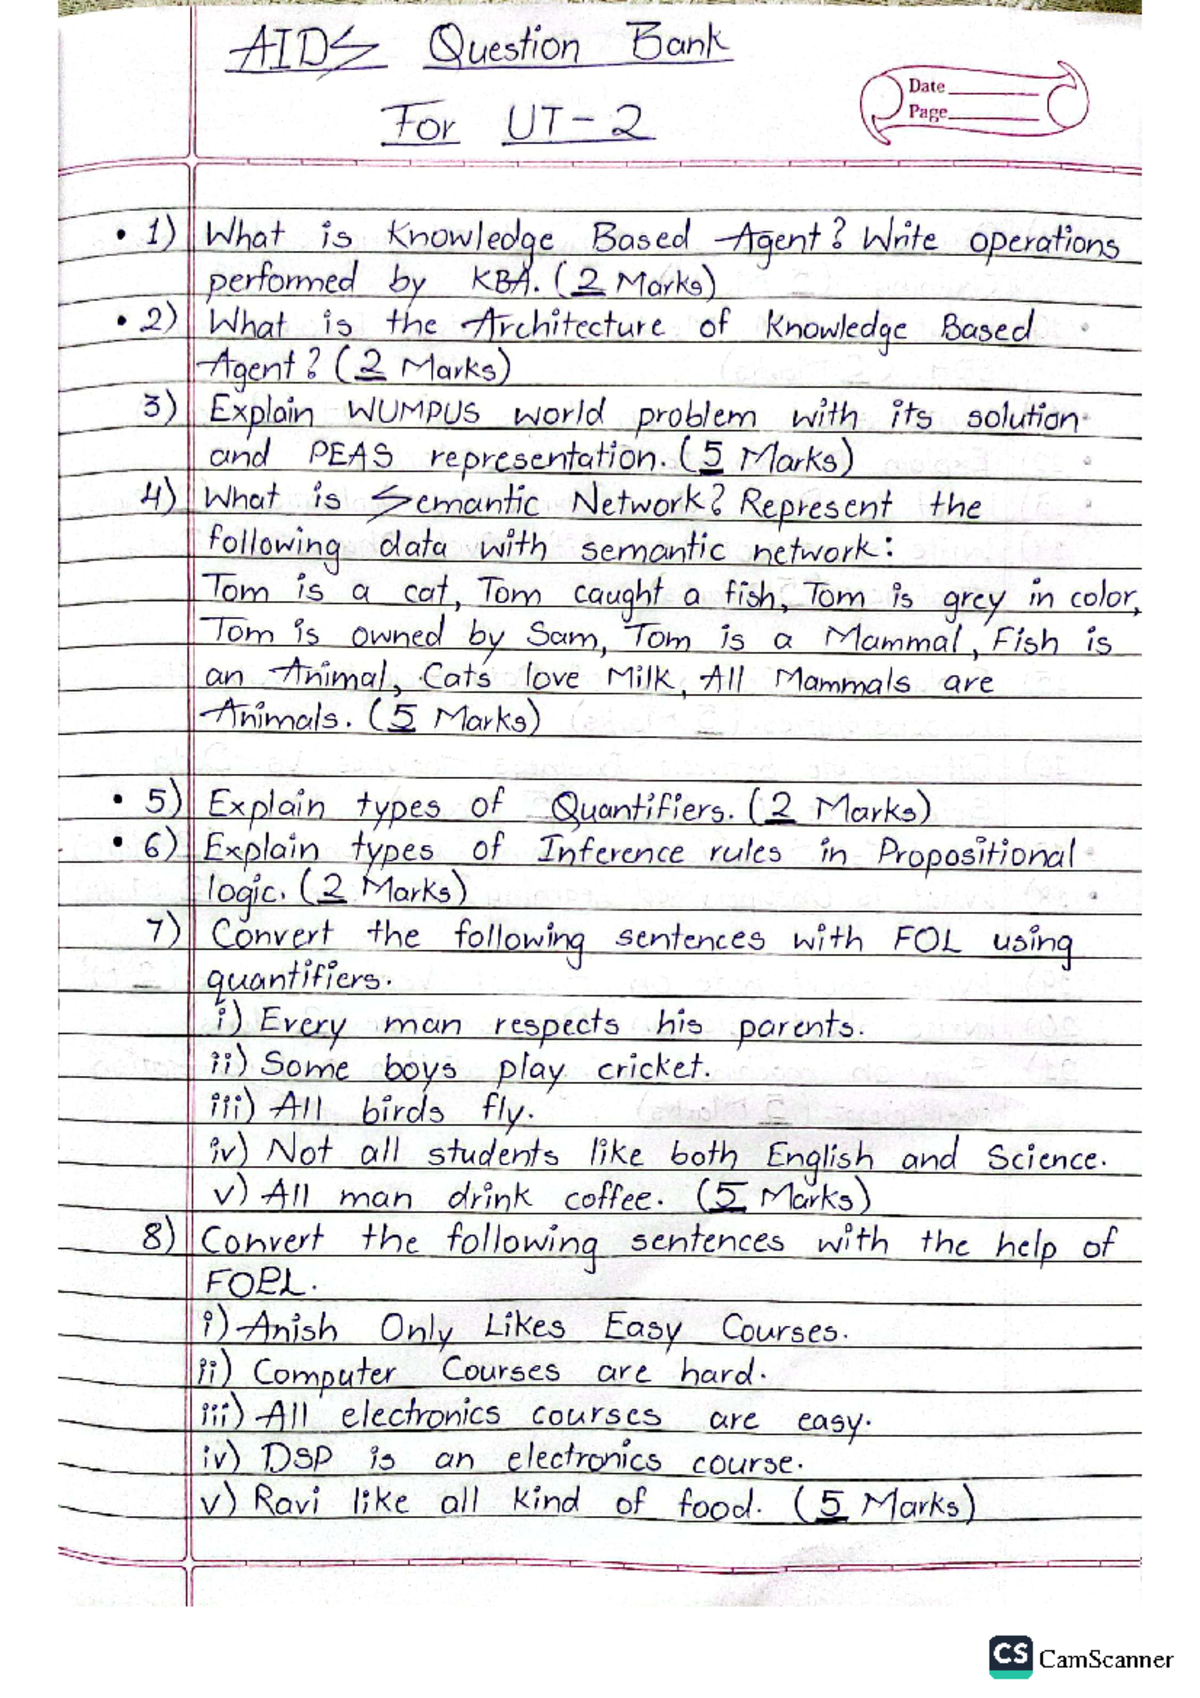 AIDS Question Bank
For UT-2
Date
Page
• 1) What is Knowledge Based Agent? Write operations
performed by KBA. (2 Marks)
• 2) What is the Architecture of Knowledge Based
Agent? (2 Marks)
3) Explain WUMPUS world problem with its solution
and PEAS representation. (5 Marks)
4) What is Semantic Network? Represent the
following data with semantic network:
Tom is a cat, Tom caught a fish, Tom is grey in color,
Tom is owned by Sam, Tom is a Mammal, Fish is
an Animal, Cats love Milk, All Mammals are
Animals. (5 Marks)
• 5) Explain types of Quantifiers. (2 Marks)
• 6) Explain types of Inference rules in Propositional
logic. (2 Marks)
7) Convert the following sentences with FOL using
quantifiers.
i) Every man respects his parents.
ii) Some boys play cricket.
iii) All birds fly.
iv) Not all students like both English and Science.
v) All man drink coffee. (5 Marks)
8) Convert the following sentences with the help of
FOPL.
i) Anish Only Likes Easy Courses.
ii) Computer Courses are hard.
iii) All electronics courses are easy.
iv) DSP is an electronics course.
v) Ravi like all kind of food. (5 Marks)
CS CamScanner